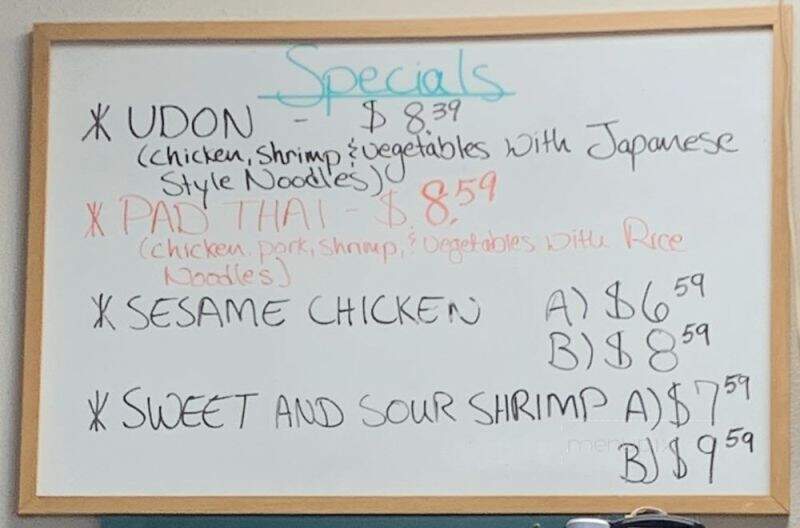 Specials
* UDON - $ 8.39
(chicken, shrimp & vegetables with Japanese
Style Noodles)
* PAD THAI - $ 8.59
(chicken, pork, shrimp, & vegetables with Rice
Noodles)
* SESAME CHICKEN A) $6 59
B) $ 8 59
* SWEET AND SOUR SHRIMP A) $7 59
B) $ 9 59